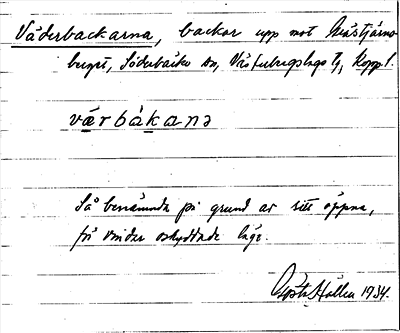 Väderbackarna, backar upp mot Mästjärns-
berget, Söderbärke sn, Västerbergslags tg, Kopp. l.
värbàkana
Så benämnda på grund av sitt öppna,
för vindar oskyddade läge.
Gösta Hallen 1934.